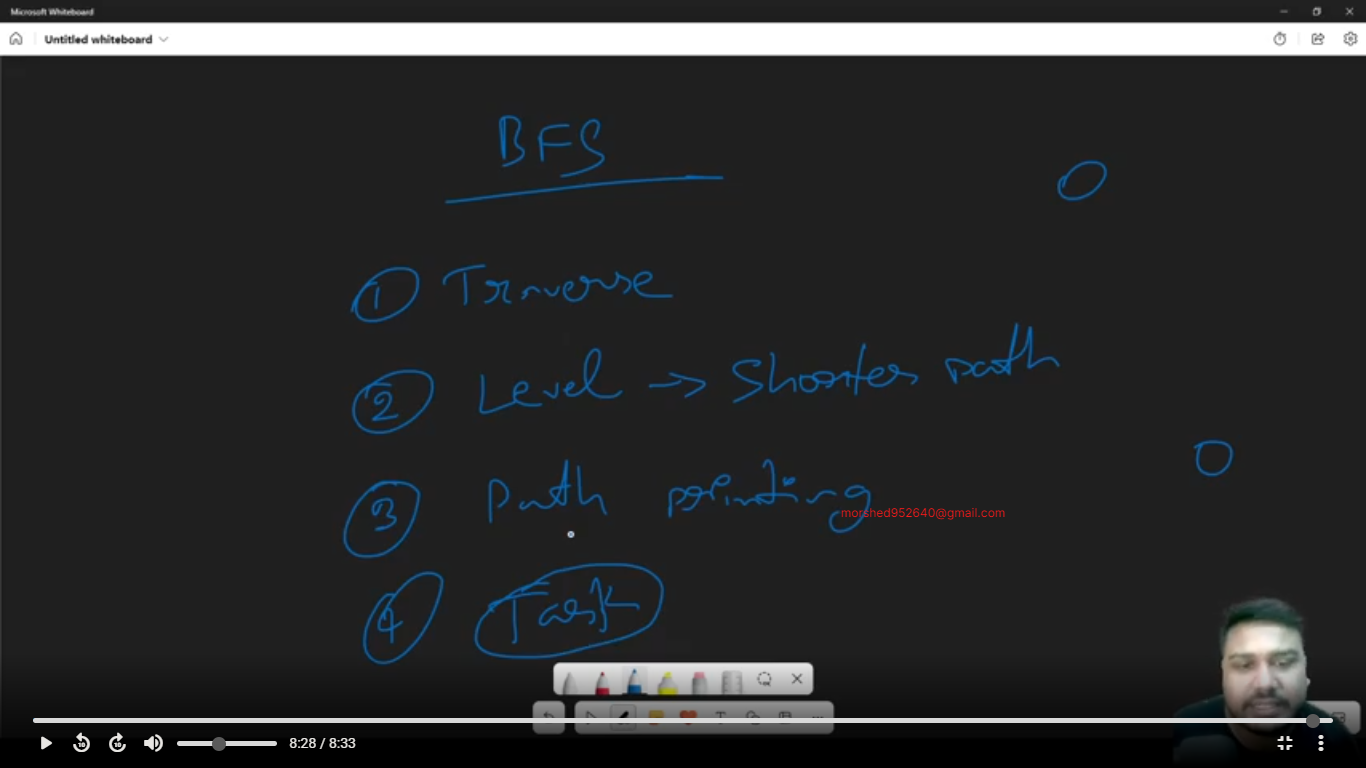 Microsoft Whiteboard
Untitled whiteboard
BFS
1 Traverse
2 Level → Shortes path
3 Path printing
morshed952640@gmail.com
4 Task
10 10 8:28 / 8:33